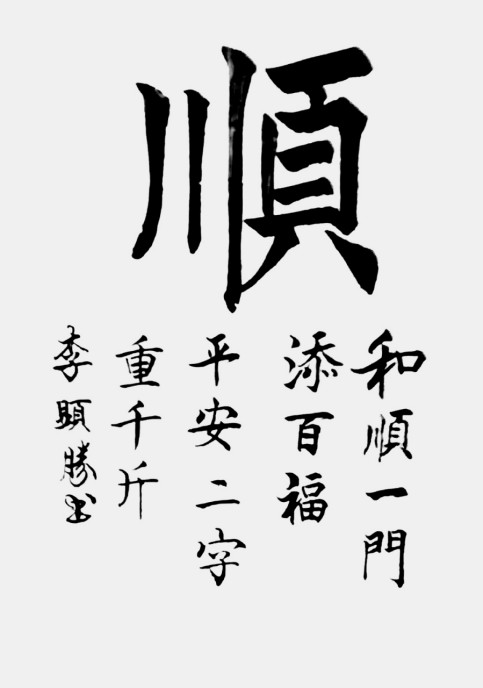 順
和順一門
添百福
平安二字
重千斤
李顯勝书